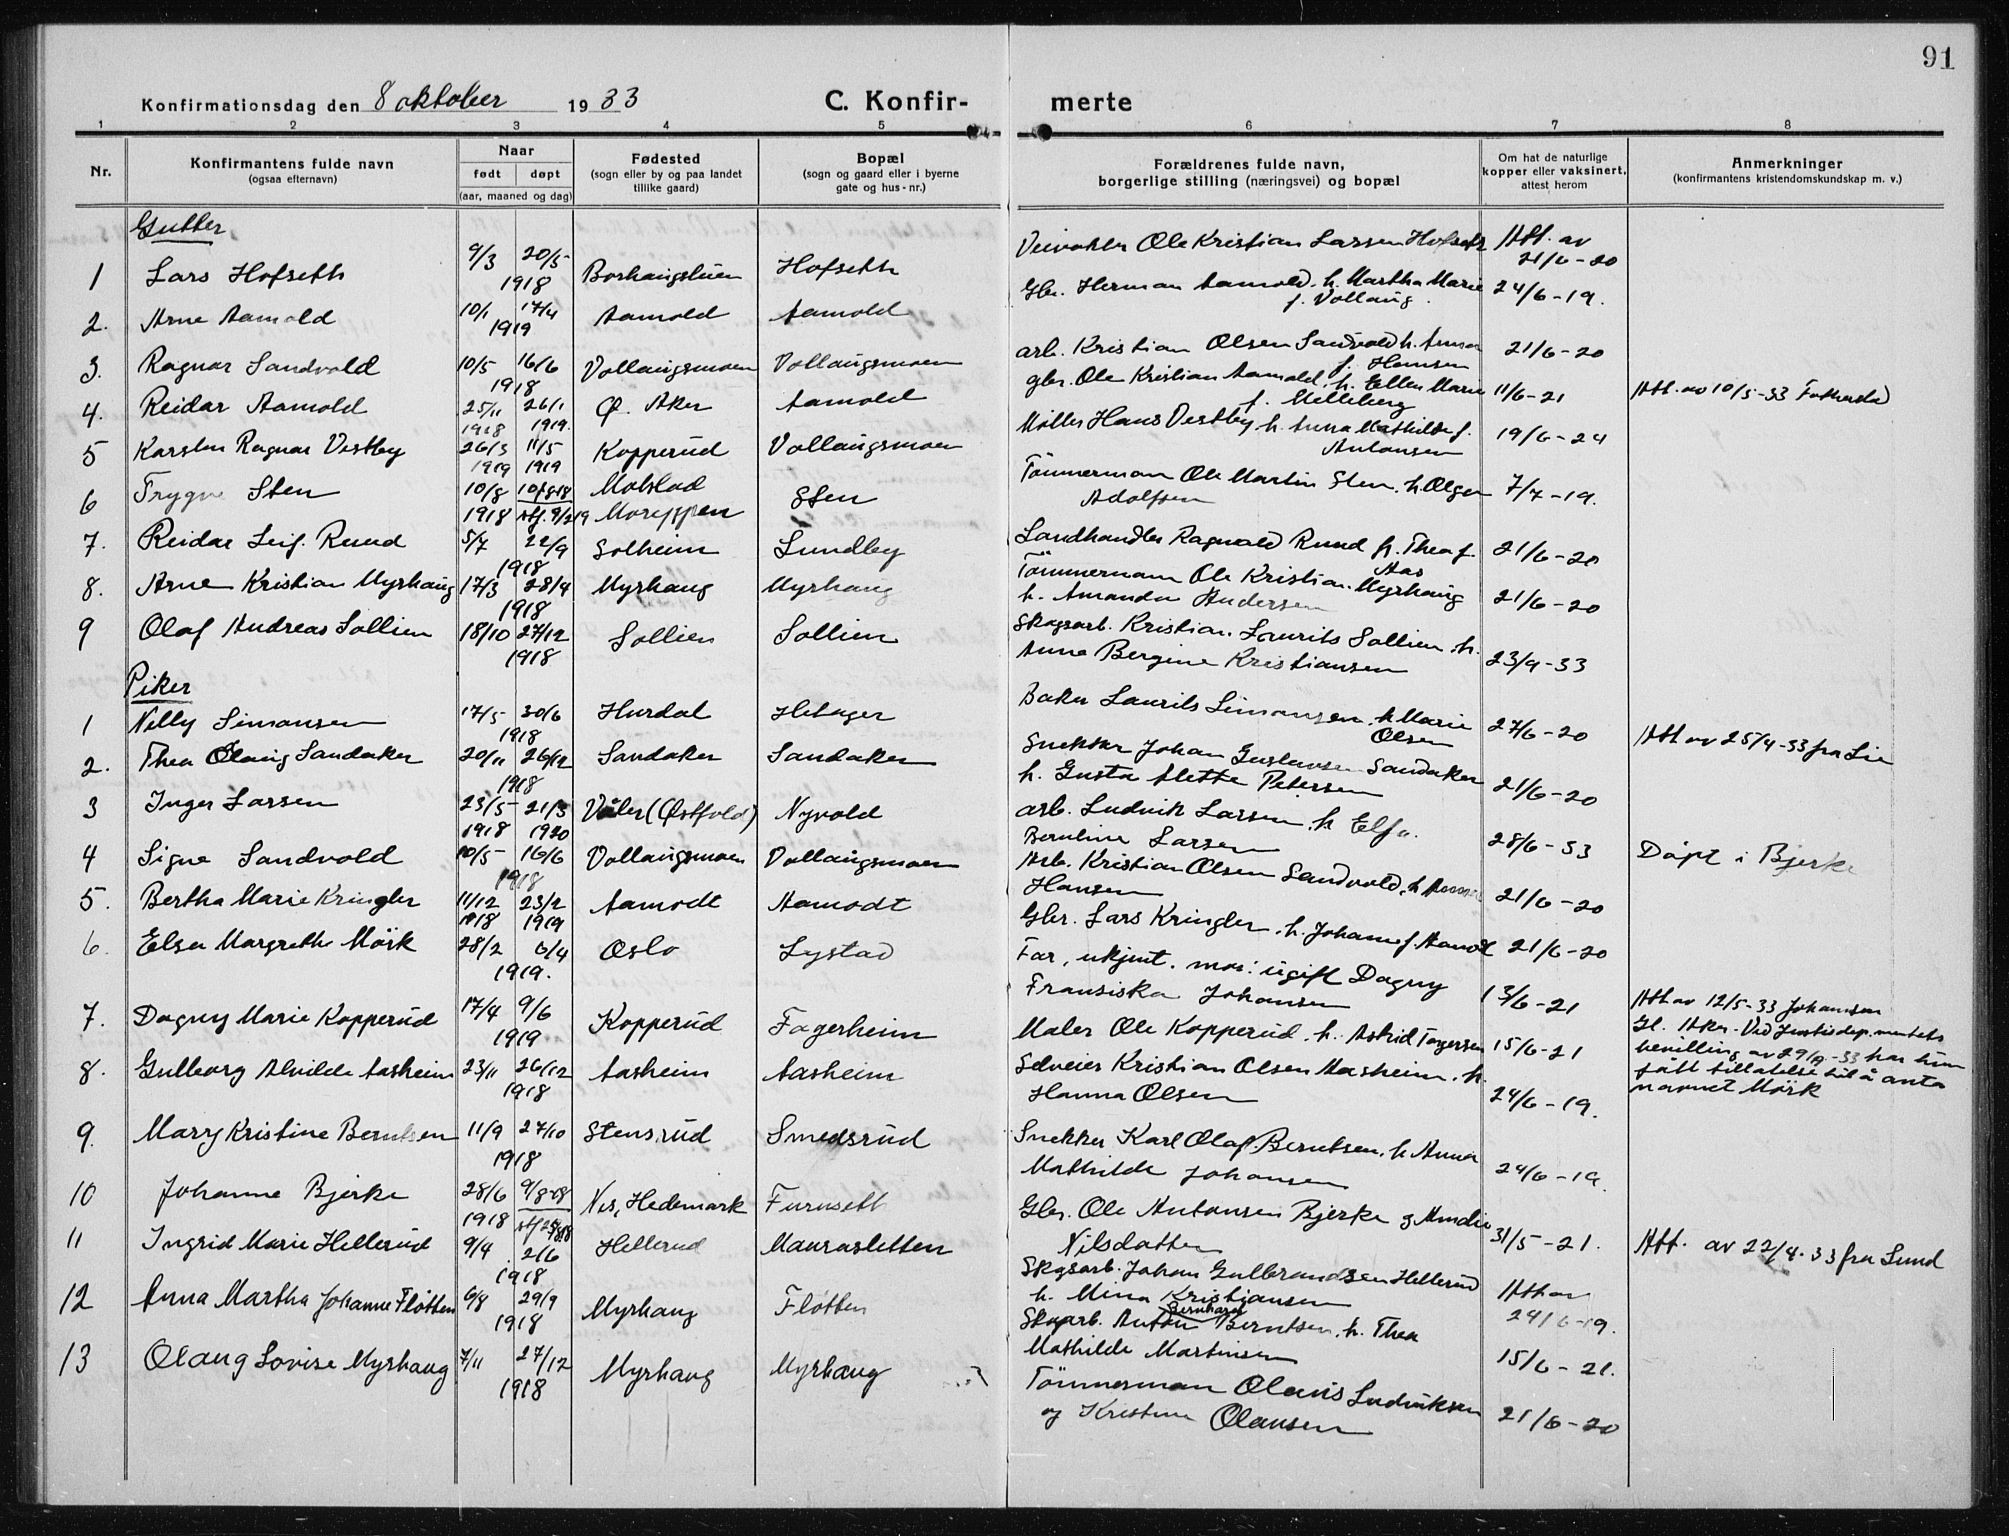 91
Konfirmationsdag den 8 oktober 1933 C. Konfir- merte
1 2 3 4 5 6 7 8
Nr.
Konfirmantens fulde navn
(ogsaa efternavn)
Naar
født døpt
(aar, maaned og dag)
Fødested
(sogn eller by og paa landet
tillike gaard)
Bopæl
(sogn og gaard eller i byerne
gate og hus-nr.)
Forældrenes fulde navn,
borgerlige stilling (næringsvei) og bopæl
Om hat de naturlige
kopper eller vaksinert,
attest herom
Anmerkninger
(konfirmantens kristendomskundskap m. v.)
Gutter
1 Lars Hofseth 9/3 20/5 1918 Hofseth
Veivokter Ole Kristian Larsen Hofseth Att. av 21/6-20
2. Arne Aamold 10/1 17/4 1919 Aamold Aamold
Gbr. Herman Aamold. h. Martha Marie f. Vollaug. 24/6-19.
3. Ragnar Sandvold 10/5 16/6 1918 Vollaugsmoen Vollaugsmoen
arb. Kristian Olsen Sandvold h. Anna f. Hansen 21/6-20
4. Reidar Aamold 25/11 1918 26/1 1919. Ø. Aker Aamold
gbr. Ole Kristian Aamold. h. Ellen Marie f. Melleberg 11/6-21 Att. av 10/5-33
5 Karsten Ragnar Vestby 26/3 1919 11/5 1919 Kopperud Vollaugsmoen
Møller Hans Vestby h. Anna Mathilde f. Antonsen 19/6-24
6 Trygve Sten 10/8 1918 10/8-18 stf. 9/2 19 Sten
Tömmerman Ole Martin Sten. h. Olga Adolfsen 7/7-19.
7. Reidar Leif Ruud 5/7 22/9 1918 Solheim Lundby
Landhandler Ragnvald Ruud h. Thea f. Aas 21/6-20
8. Arne Kristian Myrhaug 17/3 28/4 1918 Myrhaug Myrhaug
Tömmermann Ole Kristian Myrhaug h. Amanda Andersen 21/6-20
9 Olaf Andreas Sollien 18/10 27/12 1918 Sollien Sollien
Skogsarb. Kristian Laurits Sollien. h. Anne Bergine Kristiansen 23/9-33
Piker
1 Nelly Simonsen 17/5 30/6 1918 Hurdal
Baker Laurits Simonsen. h Marie Olsen 27/6-20 Att av 25/4-33 fra Lie
2. Thea Olaug Sandaker 20/11 26/12 1918 Sandaker Sandaker
Snekker Johan Gustavsen Sandaker h. Gusta Mette Petersen 21/6-20
3 Inger Larsen 23/5 1918 21/3 1920 Våler (Østfold) Nyvold
arb. Ludvik Larsen. h Elfr. Berntine Larsen 28/6-33 Døpt i Bjerke
4 Signe Sandvold 10/5 16/6 1918 Vollaugsmoen Vollaugsmoen
Arb. Kristian Olsen Sandvold. h Anna Hansen 21/6-20
5. Bertha Marie Kringler 11/12 1918 23/2 1919 Aamodt Aamodt
Gbr. Lars Kringler. h. Johanne f. Aamodt 21/6-20
6. Elsa Margrethe Mörk 28/2 6/4 1919. Oslo Lystad
Far, ukjent. mor: ugift Dagny Fransiska Johansen 13/6-21 Att av 12/5-33 Johannson
Gl. Aker - Ved Justisdep.mentets
bevilling av 29/9-33 har hun
fått tillatelse til å anta
navnet Mörk
7. Dagny Marie Kopperud 17/4 9/6 1919 Kopperud Fagerheim
Maler Ole Kopperud. h. Astrid Torgersen 15/6-21
8. Gulborg Alvilde Aasheim 23/11 26/12 1918 Aasheim Aasheim
Selveier Kristian Olsen Aasheim. h. Hanna Olsen 24/6-19.
9. Mary Kristine Berntsen 11/9 27/10 1918 Stensrud Smedsrud
Snekker Karl Olaf Berntsen. h Anna Mathilde Johansen 24/6-19.
10 Johanne Bjerke 28/6 1918 9/8-18 Nes, Hedemark Furuseth
Gbr. Ole Antonsen Bjerke og Amalie Nilsdatter 31/5-21. Att. av 22/4-33 fra Lund
11 Ingrid Marie Hellerud 9/4 2/6 1918 Hellerud Mauraslettten
Skogsarb. Johan Gulbrandsen Hellerud h. Mina Kristiansen Att av 24/6-19.
12 Anna Martha Johanne Fløtten 6/8 29/9 1918 Myrhaug Fløtten
Skogarb. Anton Bernhard Berntsen. h. Thea Mathilde Martinsen 15/6-21.
13 Olaug Lovise Myrhaug 7/11 27/12 1918 Myrhaug Myrhaug
Tömmerman Olavis Ludviksen og Kristine Olausen 21/6-20